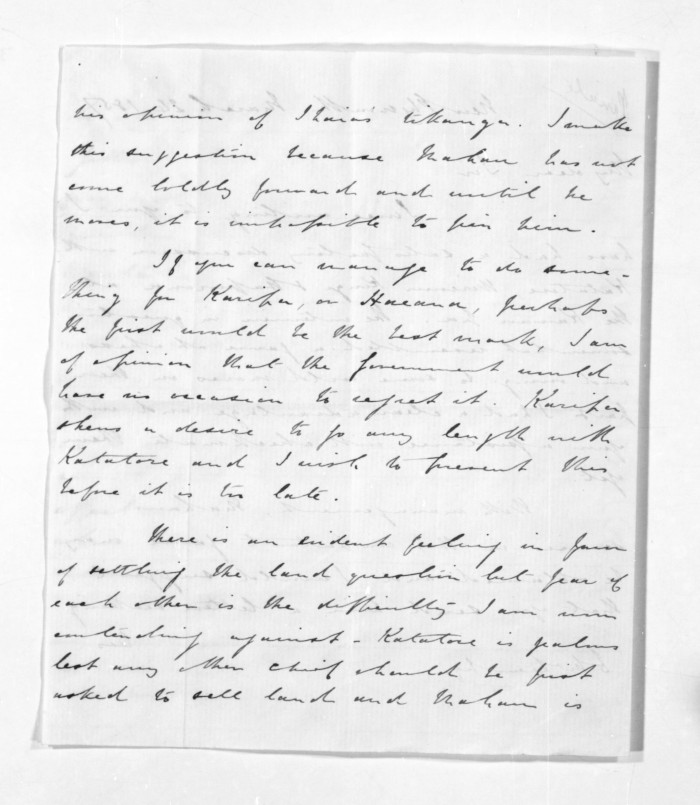 his opinion of Ihaias tikanga. I make
this suggestion because Mahau has not
come boldly forward and until he
moves, it is impossible to pin him.
If you can manage to do some-
thing for Karipa, or Hacana, perhaps
the first would be the best mark, I am
of opinion that the Government would
have no occasion to regret it. Karipa
shews a desire to go any length with
Katatore and I wish to prevent this
before it is too late.
There is an evident feeling in favor
of settling the land question but fear of
each other is the difficulty I am now
contending against - Katatore is jealous
lest any other chief should be first
asked to sell land and Mahau is